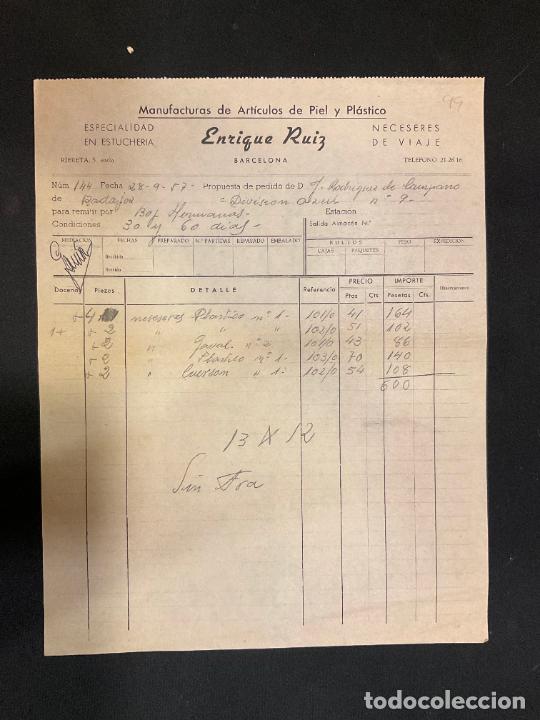 99
Manufacturas de Artículos de Piel y Plástico
ESPECIALIDAD
EN ESTUCHERIA
Enrique Ruiz
BARCELONA
NECESERES
DE VIAJE
RIERETA, 5, entlo.
TELEFONO 21 26 16
Núm. 144 Fecha 28-9-57 Propuesta de pedido de D. J. Rodriguez de
de Badajoz División Azul nº 9-
para remitir por Hermanos- Estación
Condiciones 30 y 60 días- Salida Almacén N.º
FECHAS PREPARADO N.º PARTIDAS REPASADO EMBALADO
BULTOS PESO EXPEDICION
CAJAS PAQUETES
Recibido
Servido
Docenas Piezas DETALLE Referencia PRECIO IMPORTE
Ptas Cts. Pesetas Cts.
+4 neceseres Plastico nº 1- 101/0 41 164
1+ +2 " " " 102/0 51 102
+2 " nº 2 101/0 43 86
+2 " Plastico nº 1- 103/0 70 140
+2 " " 1- 102/0 54 108
600
13 X 12
Sin
todocoleccion
todocoleccion.net